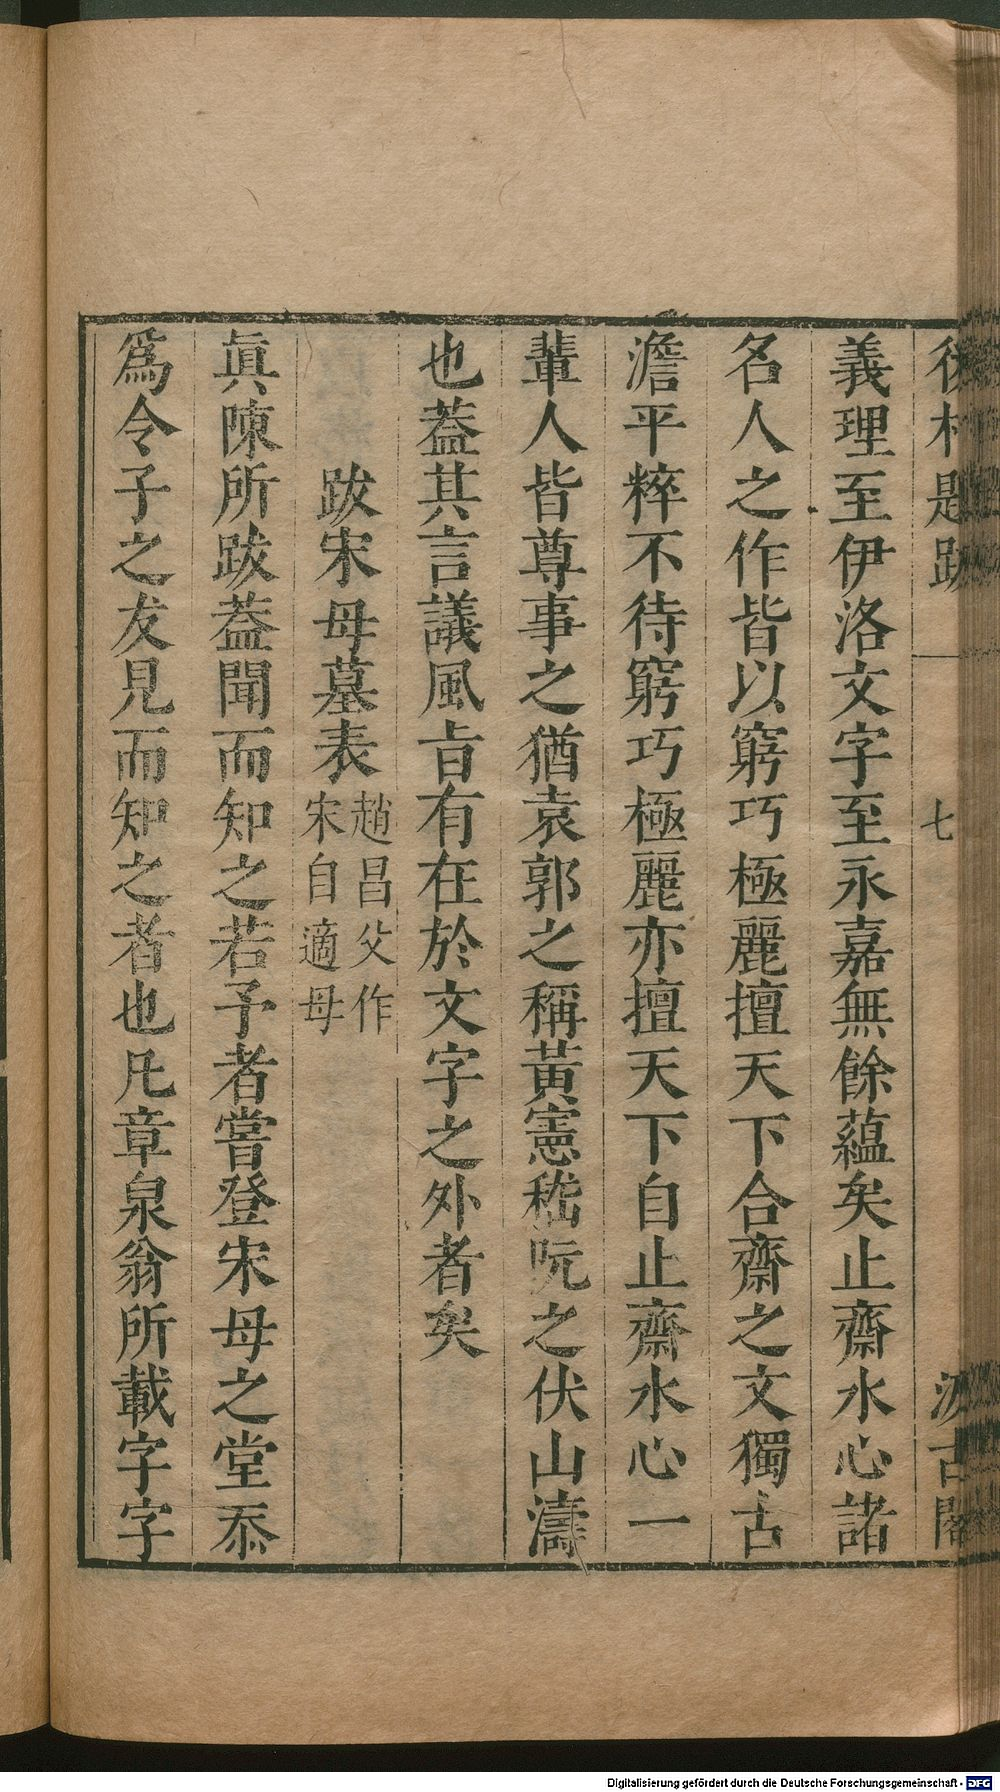 後村題跋 七 汲古閣
義理至伊洛文字至永嘉無餘蘊矣止齋水心諸
名人之作皆以窮巧極麗擅天下合齋之文獨古
澹平粹不待窮巧極麗亦擅天下自止齋水心一
輩人皆尊事之猶袁郭之稱黃憲嵇阮之伏山濤
也葢其言議風旨有在於文字之外者矣
跋宋母墓表 趙昌父作 宋自適母
眞陳所跋葢聞而知之若予者嘗登宋母之堂忝
爲令子之友見而知之者也凡章泉翁所載字字
Digitalisierung gefördert durch die Deutsche Forschungsgemeinschaft - DFG